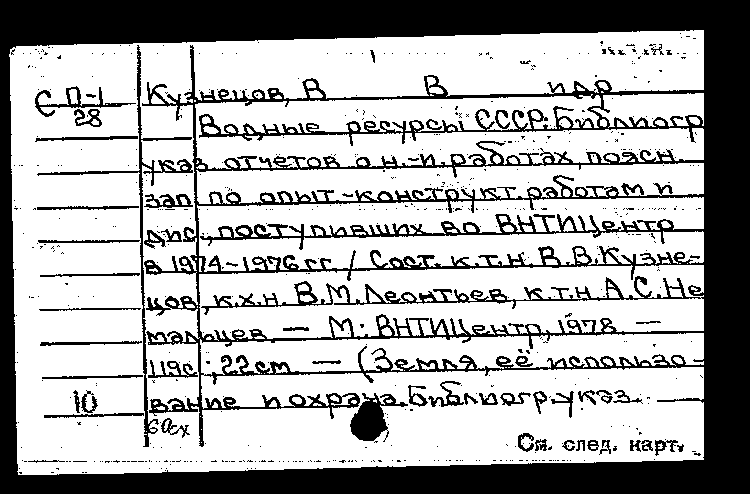 С П-1 Кузнецов, В В и др
28 Водные ресурсы СССР: Библиогр
указ отчетов о н.-и. работах, поясн
зап по опыт.-конструкт. работам и
дис., поступивших во ВНТИЦентр
в 1974-1976 гг / Сост. к.т.н. В.В. Кузне-
цов, к.х.н. В.М. Леонтьев, к.т.н А.С. Не
мальцев. — М: ВНТИЦентр, 1978. —
119с; 22см — (Земля, её использо-
10 вание и охрана. Библиогр. указ. —
60сх
См. след. карт.